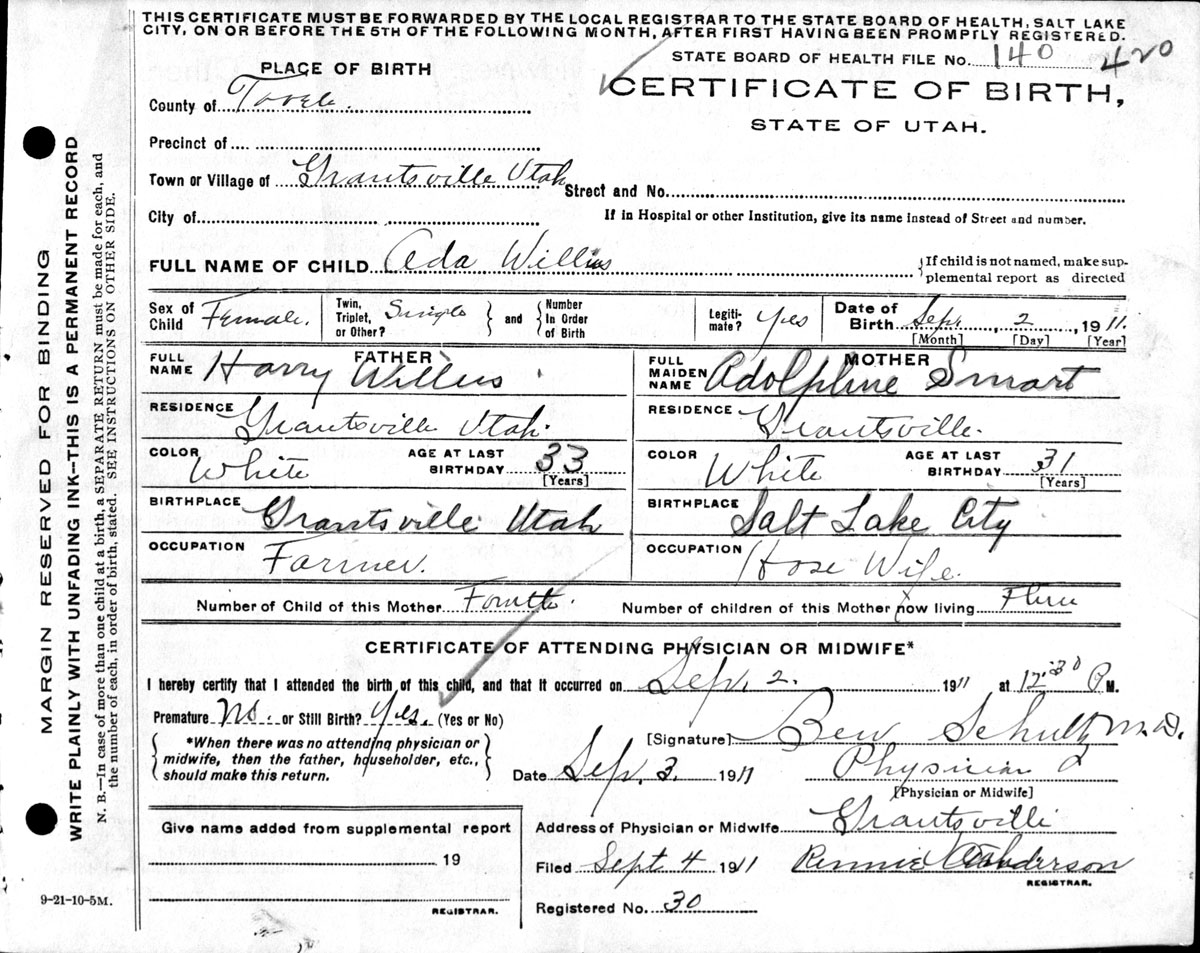 THIS CERTIFICATE MUST BE FORWARDED BY THE LOCAL REGISTRAR TO THE STATE BOARD OF HEALTH, SALT LAKE
CITY, ON OR BEFORE THE 5TH OF THE FOLLOWING MONTH, AFTER FIRST HAVING BEEN PROMPTLY REGISTERED.
STATE BOARD OF HEALTH FILE No. 140 420
PLACE OF BIRTH
CERTIFICATE OF BIRTH,
County of Tooele.
STATE OF UTAH.
Precinct of
Town or Village of Grantsville Utah Street and No.
City of If in Hospital or other Institution, give its name instead of Street and number.
FULL NAME OF CHILD Ada Willis {If child is not named, make sup-
plemental report as directed
Sex of Child Female. Twin, Triplet, or Other? Single and Number In Order of Birth Legiti-mate? Yes Date of Birth Sept. 2, 1911.
[Month] [Day] [Year]
FATHER
FULL NAME Harry Willis
RESIDENCE Grantsville Utah.
COLOR White AGE AT LAST BIRTHDAY 33
[Years]
BIRTHPLACE Grantsville Utah
OCCUPATION Farmer.
MOTHER
FULL MAIDEN NAME Adolphine Smart
RESIDENCE Grantsville.
COLOR White AGE AT LAST BIRTHDAY 31
[Years]
BIRTHPLACE Salt Lake City
OCCUPATION Hose Wife.
Number of Child of this Mother Fourth. Number of children of this Mother now living Three
CERTIFICATE OF ATTENDING PHYSICIAN OR MIDWIFE*
I hereby certify that I attended the birth of this child, and that it occurred on Sep. 2. 1911 at 12:30 P M.
Premature No. or Still Birth? Yes. (Yes or No)
*When there was no attending physician or
midwife, then the father, householder, etc.,
should make this return.
[Signature] Schultz M.D.
Date Sep. 3. 1911 Physician
[Physician or Midwife]
Give name added from supplemental report
19
REGISTRAR.
Address of Physician or Midwife Grantsville
Filed Sept 4 1911 Anderson
REGISTRAR.
Registered No. 30
9-21-10-5M.
MARGIN RESERVED FOR BINDING
WRITE PLAINLY WITH UNFADING INK--THIS IS A PERMANENT RECORD
N. B.—In case of more than one child at a birth, a SEPARATE RETURN must be made for each, and
the number of each, in order of birth, stated. SEE INSTRUCTIONS ON OTHER SIDE.